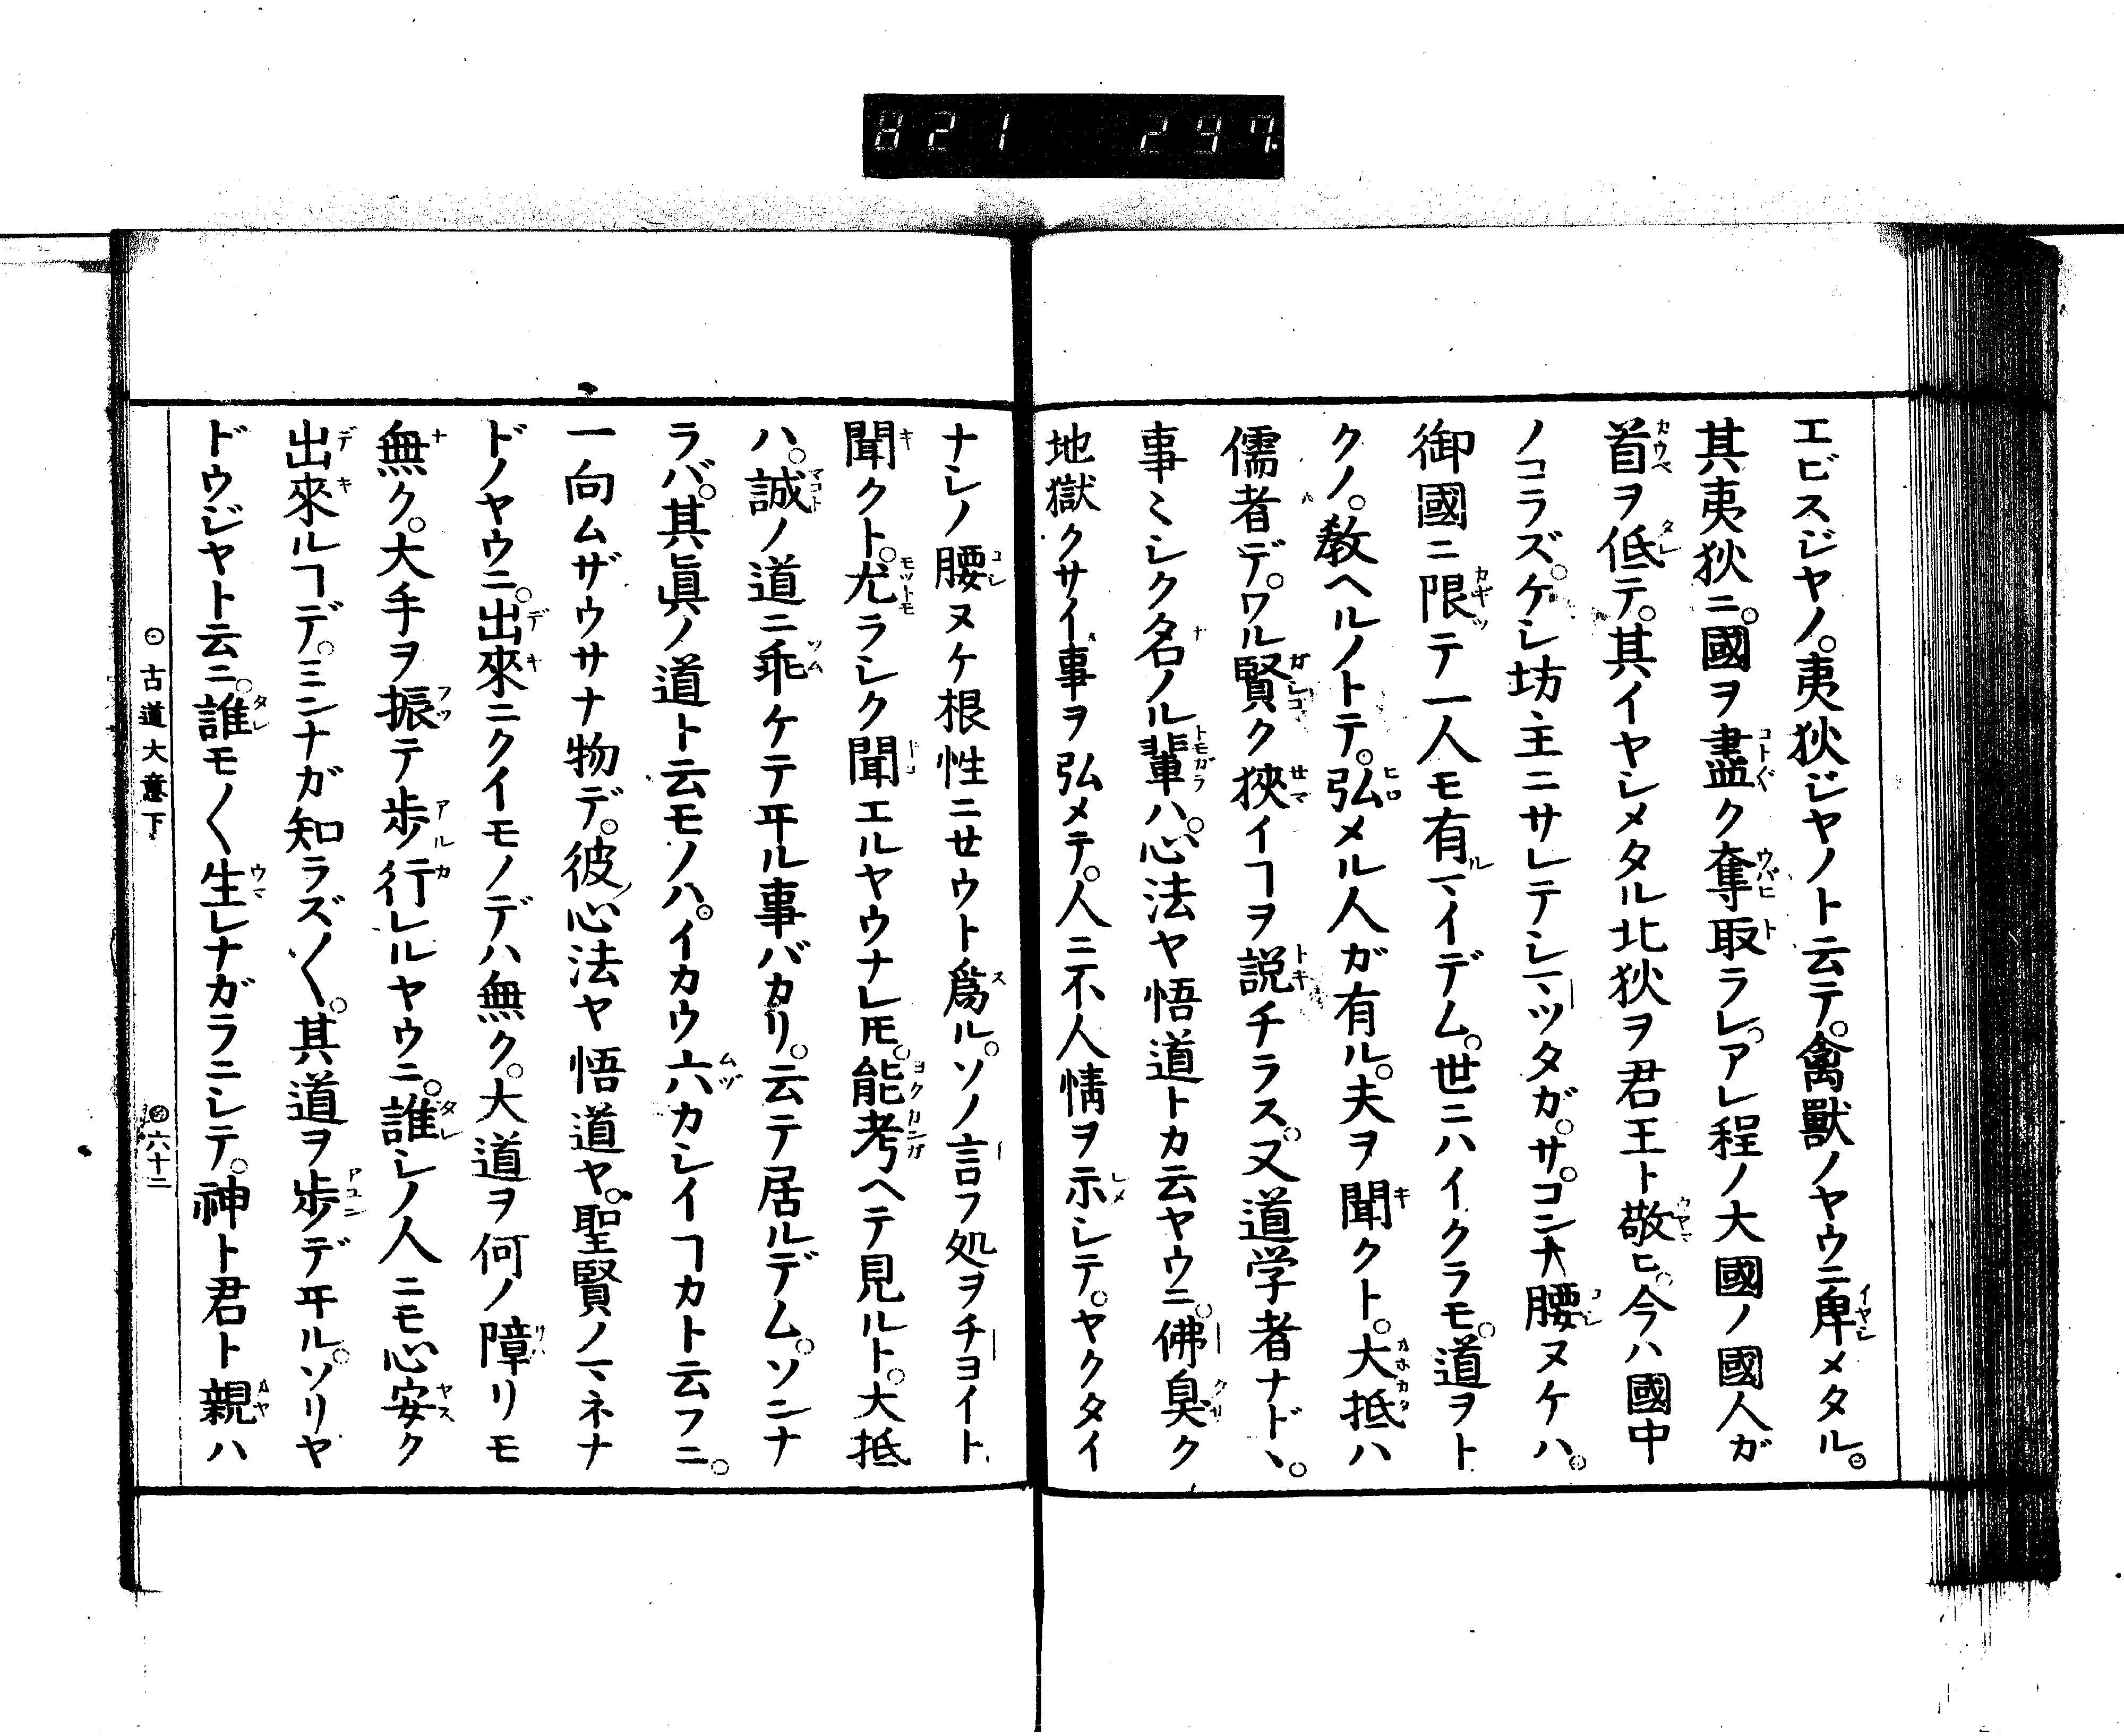 821 297
エビスジヤノ。夷狄ジヤノト云テ。禽獸ノヤウニ卑メタル。
其夷狄ニ。國ヲ盡ク奪取ラレ。アレ程ノ大國ノ國人ガ
首ヲ低テ。其イヤシメタル北狄ヲ君王ト敬ヒ。今ハ國中
ノコラズ。ケシ坊主ニサレテシマツタガ。サ。コンナ腰ヌケハ。
御國ニ限テ一人モ有マイデム。世ニハイクラモ。道ヲト
クノ。教ヘルノトテ。弘メル人ガ有ル。夫ヲ聞クト。大抵ハ
儒者デ。ワル賢ク狹イヿヲ説チラス。又道学者ナドヽ。
事〻シク名ノル輩ハ。心法ヤ悟道トカ云ヤウニ。佛臭ク
地獄クサイ事ヲ弘メテ。人ニ不人情ヲ示シテ。ヤクタイ
ナシノ腰ヌケ根性ニセウト爲ル。ソノ言フ処ヲチヨイト
聞クト。尤ラシク聞エルヤウナレ𪜈。能考ヘテ見ルト。大抵
ハ。誠ノ道ニ乖ケテヰル事バカリ。云テ居ルデム。ソンナ
ラバ。其眞ノ道ト云モノハ。イカウ六カシイヿカト云フニ。
一向ムザウサナ物デ。彼心法ヤ悟道ヤ。聖賢ノマネナ
ドノヤウニ。出來ニクイモノデハ無ク。大道ヲ何ノ障リモ
無ク。大手ヲ振テ歩行レルヤウニ。誰シノ人ニモ心安ク
出來ルヿデ。ミンナガ知ラズ〳〵。其道ヲ歩デヰル。ソリヤ
ドウジヤト云ニ。誰モ〳〵生レナガラニシテ。神ト君ト親ハ
古道大意下 六十二